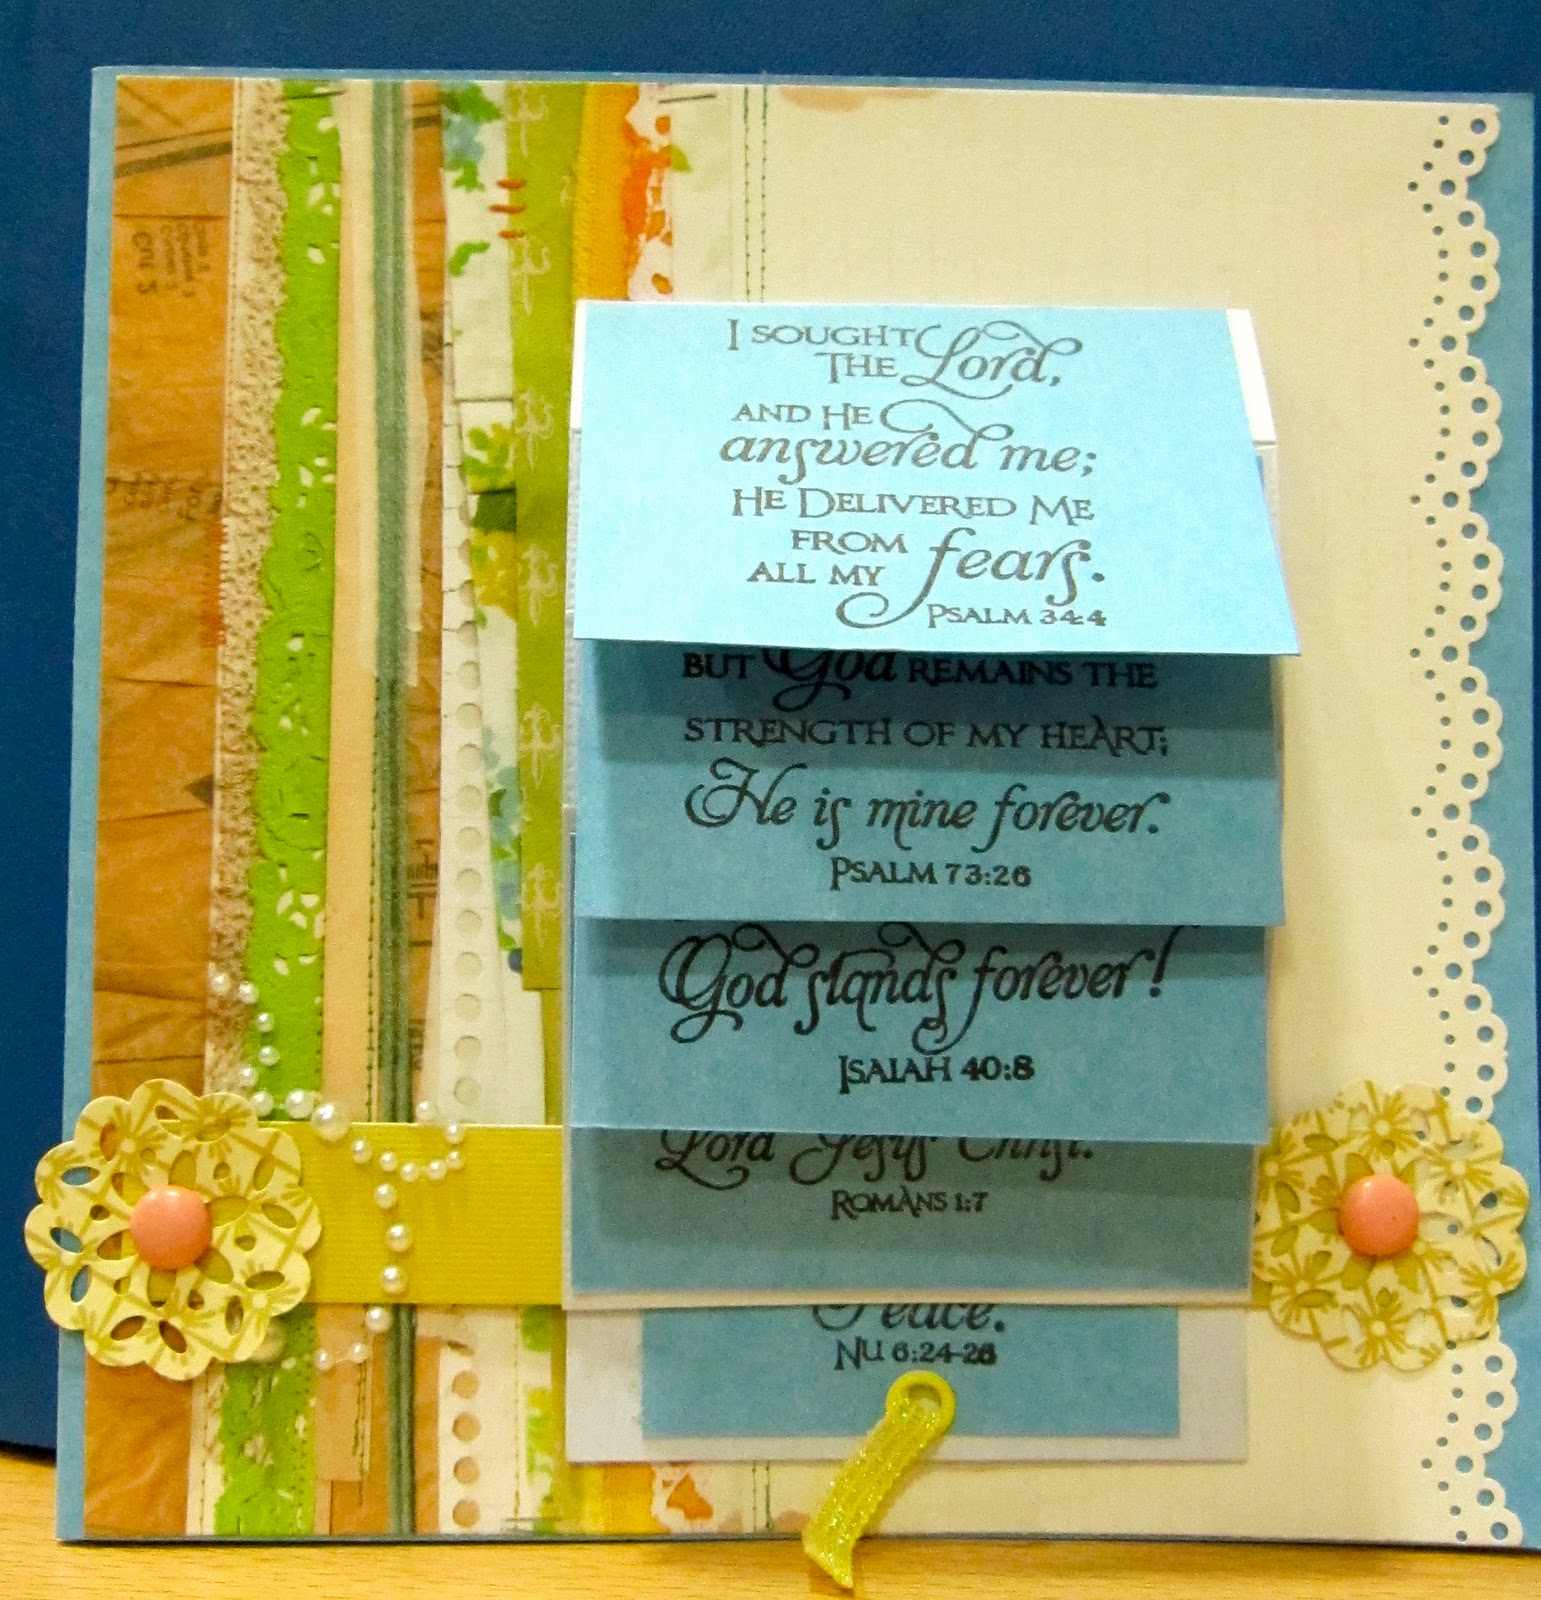 I SOUGHT
THE Lord,
AND HE
answered me;
HE DELIVERED ME
FROM
ALL MY fears.
PSALM 34:4
BUT God REMAINS THE
STRENGTH OF MY HEART;
He is mine forever.
PSALM 73:26
God stands forever!
ISAIAH 40:8
Lord Jesus Christ.
ROMANS 1:7
Peace.
NU 6:24-26